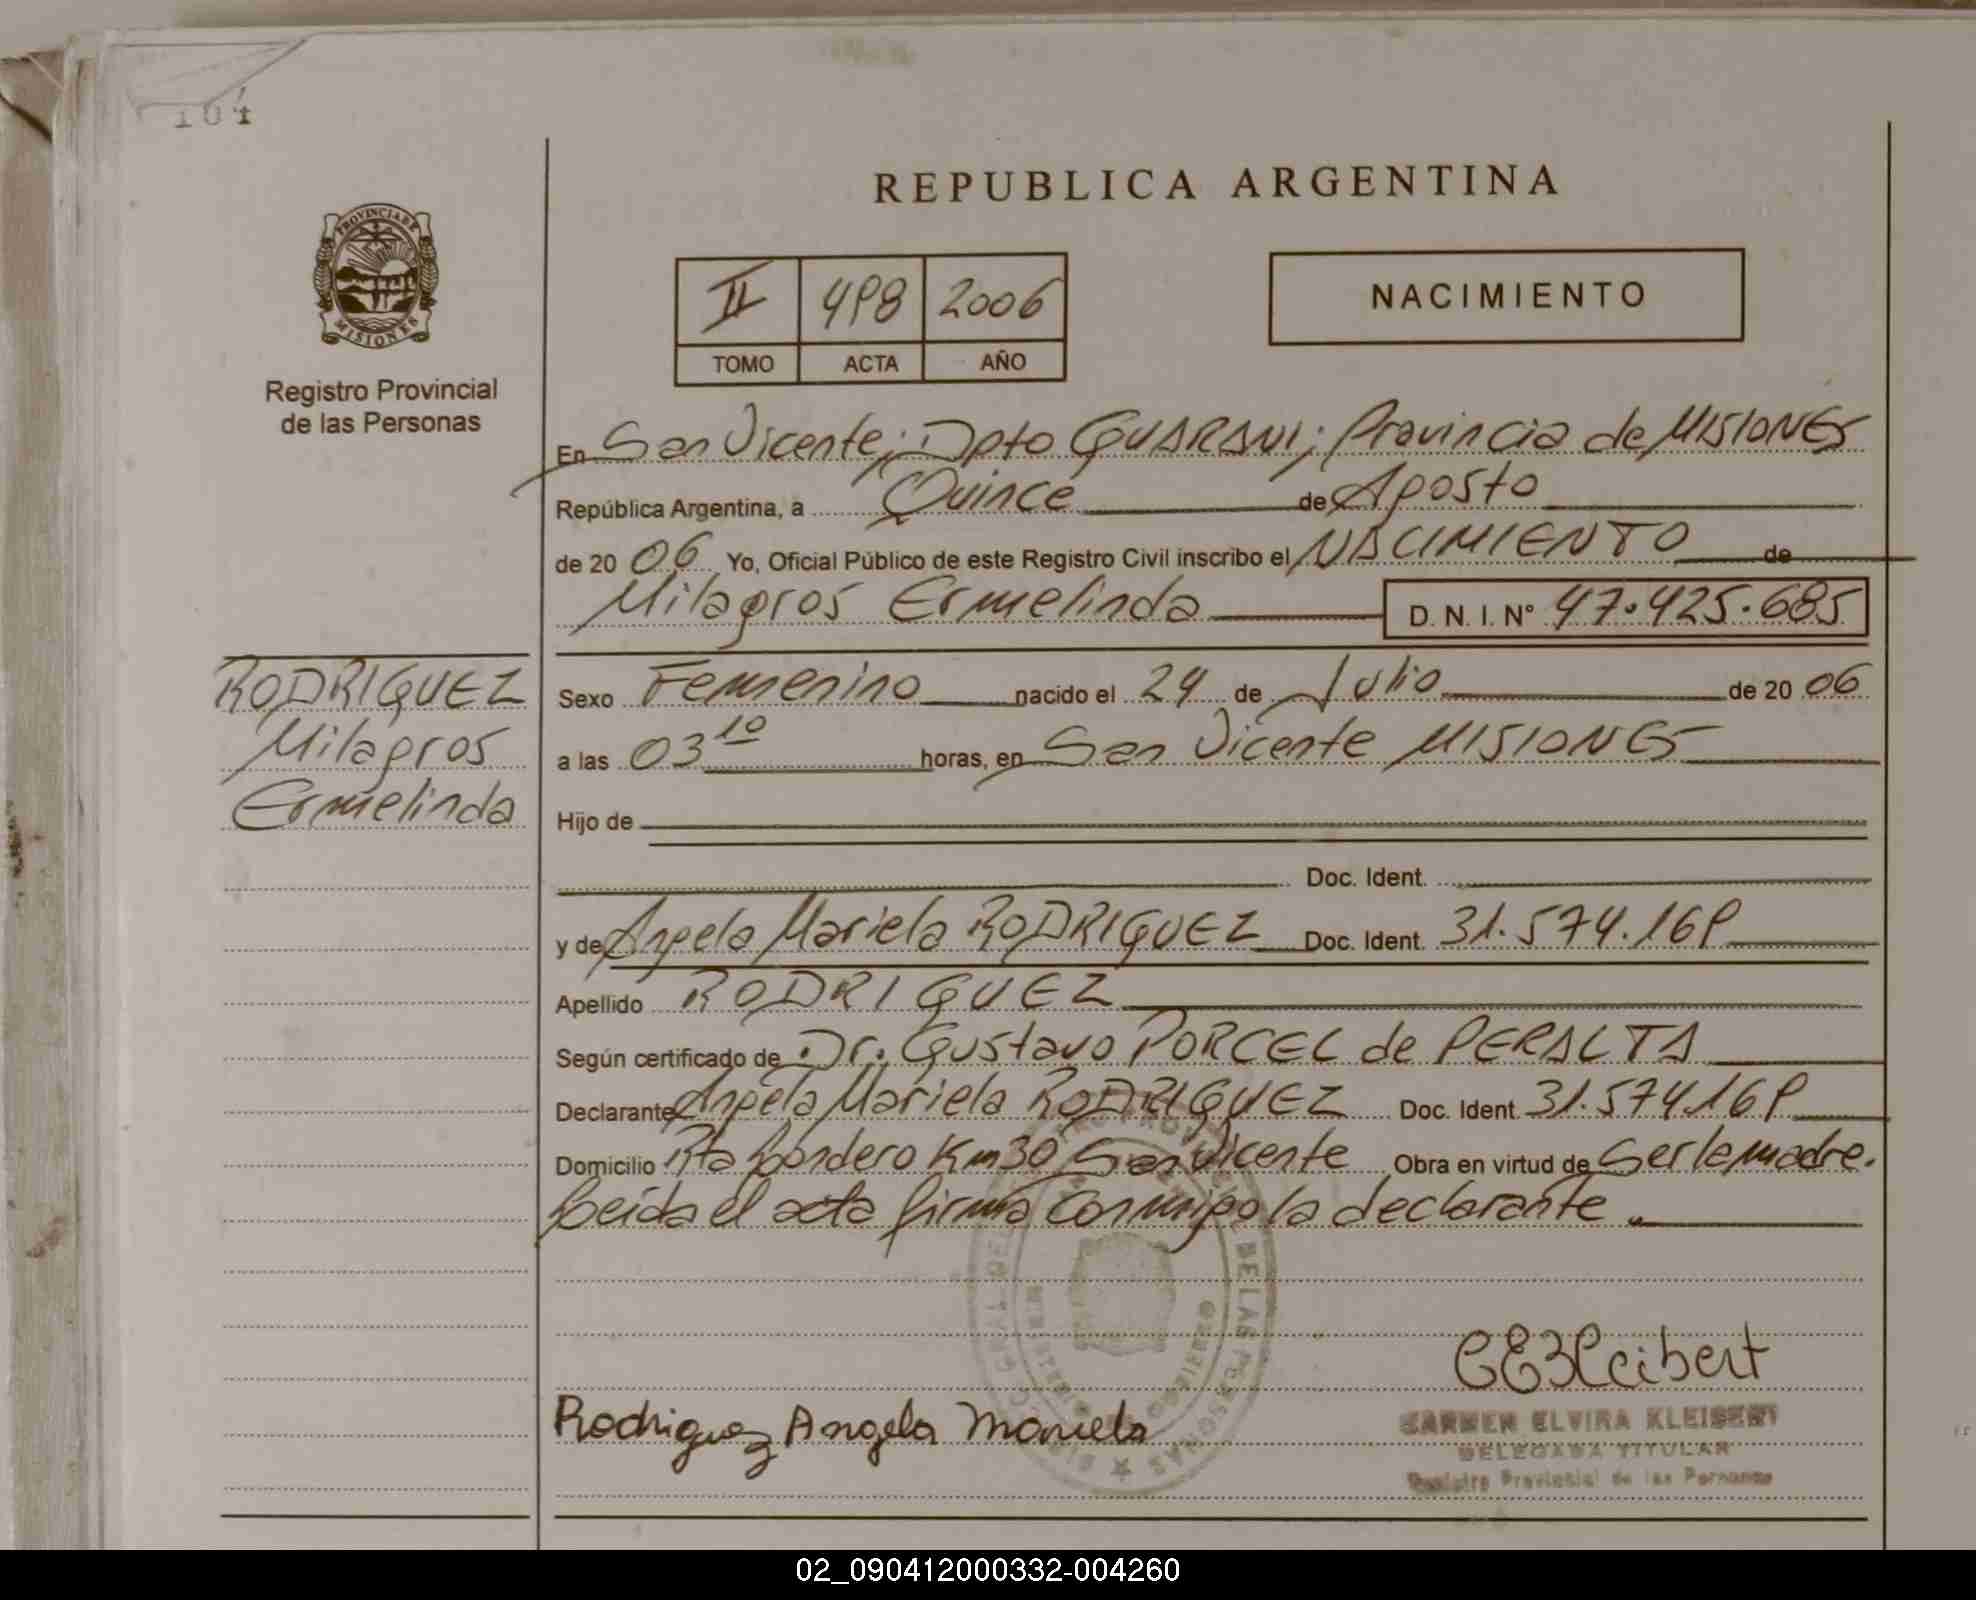 104
PROVINCIA DE
MISIONES
Registro Provincial
de las Personas
REPUBLICA ARGENTINA
II 498 2006
TOMO ACTA AÑO
NACIMIENTO
En San Vicente; Dpto GUARANI; Provincia de MISIONES
República Argentina, a Quince de Agosto
de 20 06 Yo, Oficial Público de este Registro Civil inscribo el NACIMIENTO de
Milagros Ermelinda D. N. I. N° 47.425.685
RODRIGUEZ
Milagros
Ermelinda
Sexo Femenino nacido el 24 de Julio de 20 06
a las 03 10 horas, en San Vicente MISIONES
Hijo de
Doc. Ident.
y de Angela Mariela RODRIGUEZ Doc. Ident. 31.574.169
Apellido RODRIGUEZ
Según certificado de Dr. Gustavo PORCEL de PERALTA
Declarante Angela Mariela RODRIGUEZ Doc. Ident. 31.574.169
Domicilio Rta Km 30 San Vicente Obra en virtud de Ser la madre.
Leída el acta firma conmigo la declarante
Rodriguez Angela Mariela
CEKleibert
CARMEN ELVIRA KLEIBERT
DELEGADA TITULAR
Registro Provincial de las Personas
02_090412000332-004260